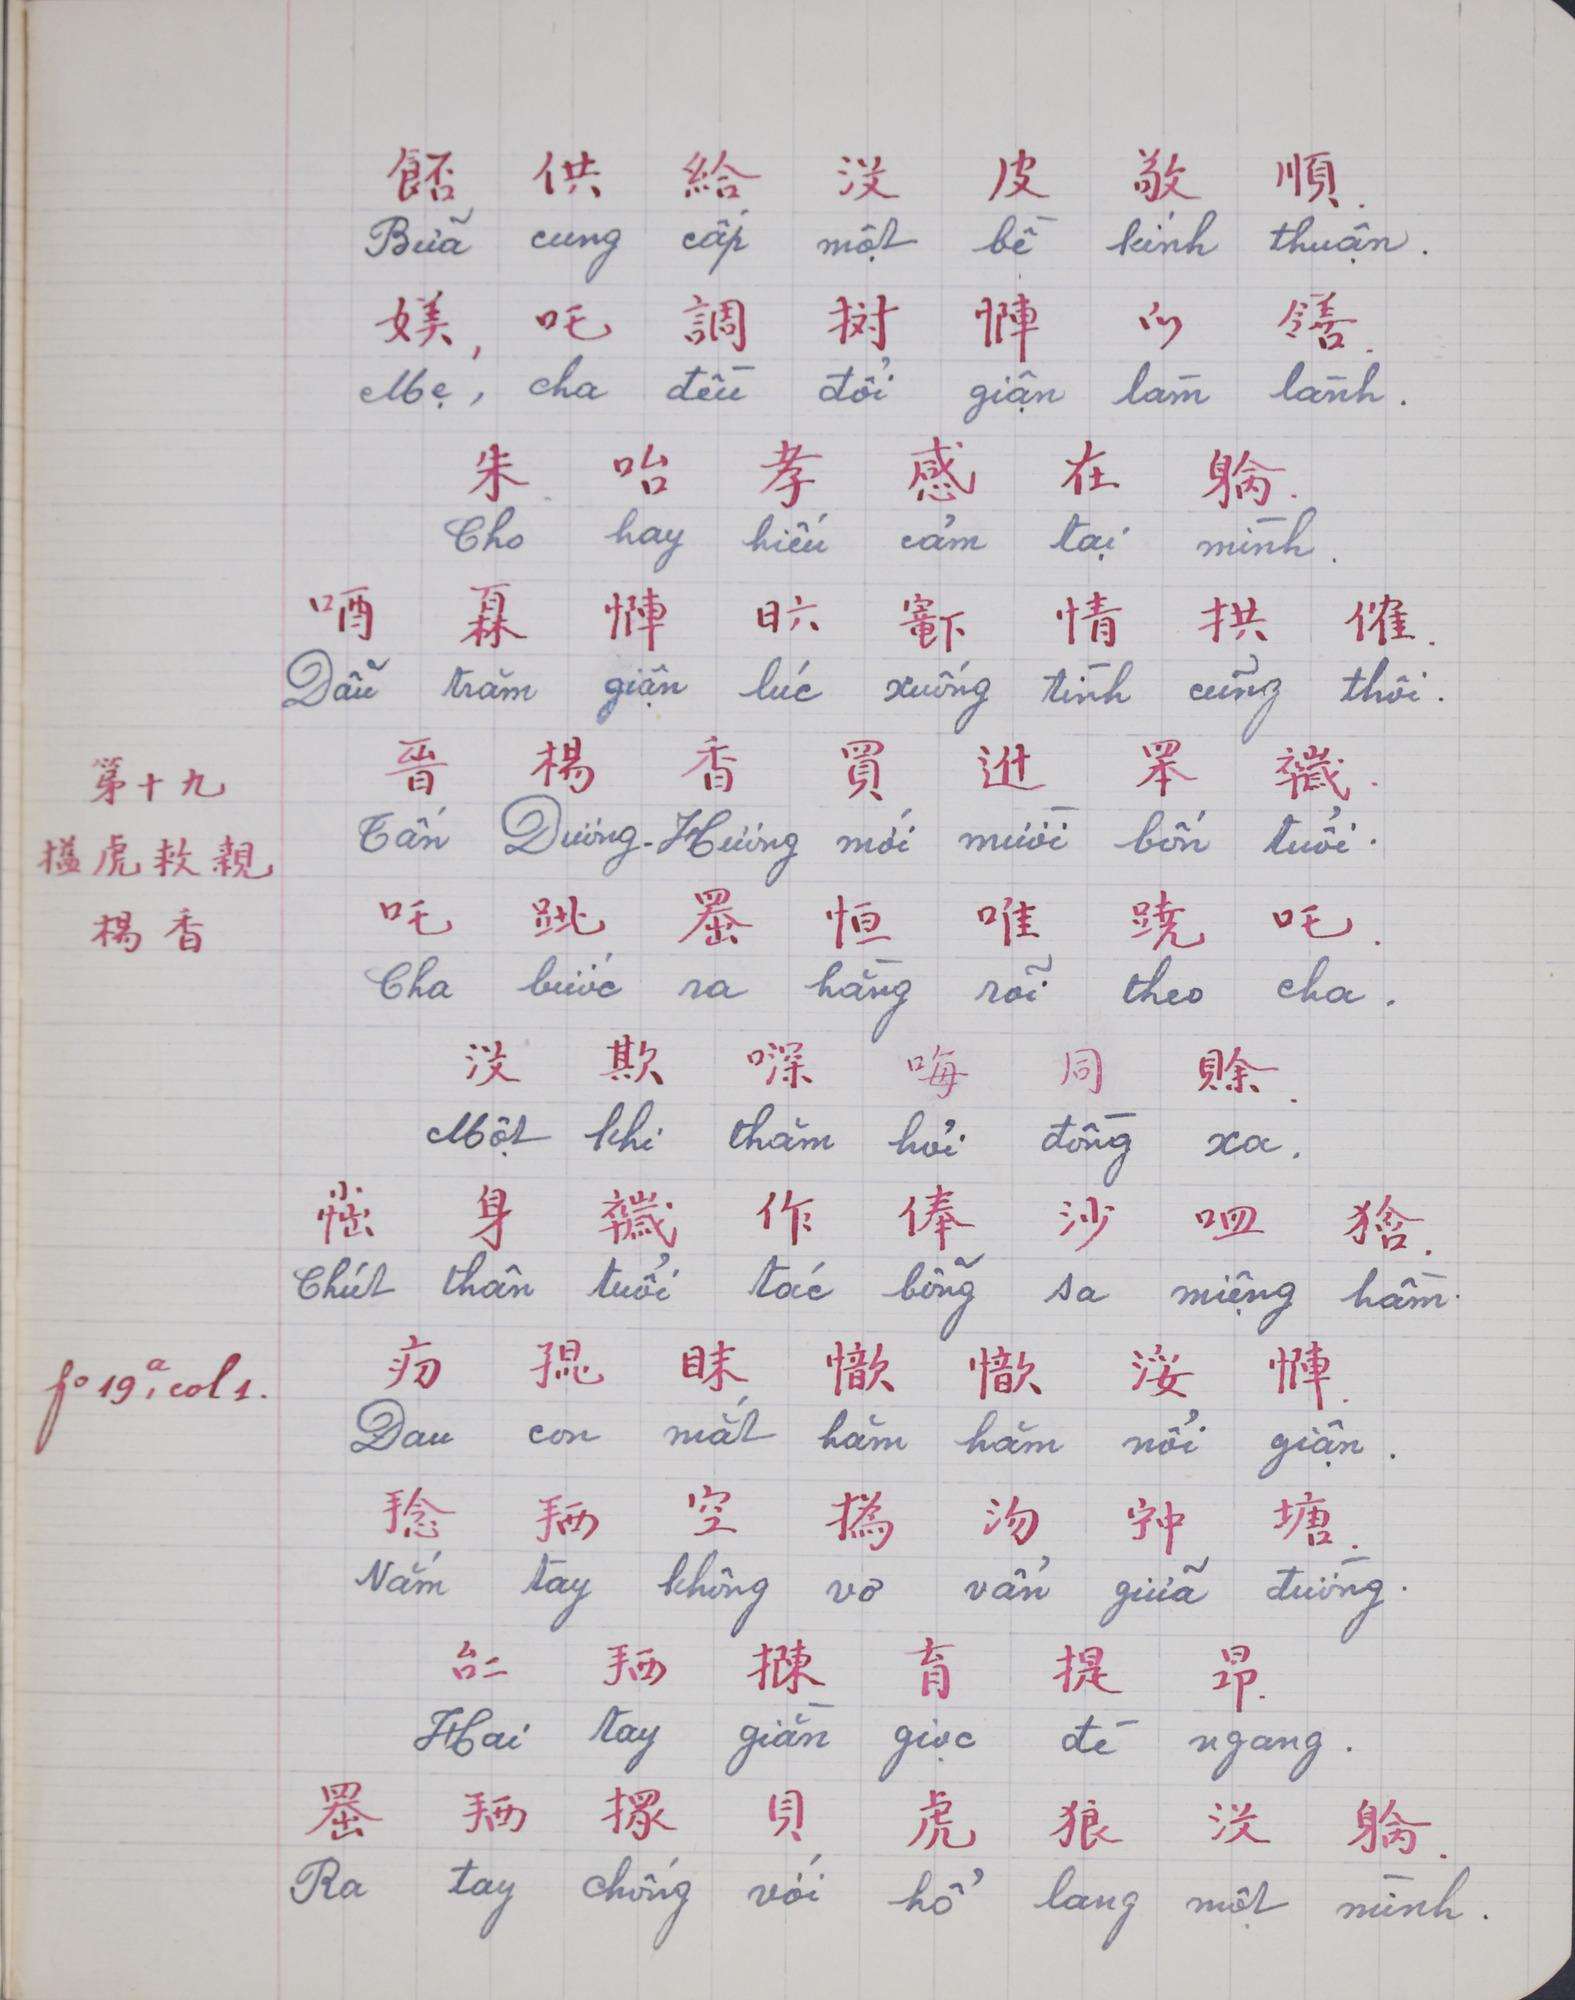 餂 供 給 沒 皮 敬 順.
Bữa cung cấp một bề kính thuận.
媄, 吒 調 𢬭 憚 𫜵 𫅜.
Mẹ, cha đều đổi giận làm lành.
朱 咍 孝 感 在 躺.
Cho hay hiếu cảm tại mình.
唒 𤾓 憚 𣅶 𨑜 情 拱 傕.
Dẫu trăm giận lúc xuống tình cũng thôi.
第十九
搤虎救親
楊香
晉 楊 香 買 𨑮 𦊚 𢆫.
Tấn Dương-Hương mới mười bốn tuổi.
吒 𨀈 𦋦 恒 唯 蹺 吒.
Cha bước ra hằng rõi theo cha.
沒 欺 𠽄 𠳨 同 賒.
Một khi thăm hỏi đồng xa.
𡮍 身 𢆫 作 俸 沙 𠰘 㺖.
Chút thân tuổi tác bỗng sa miệng hầm.
fº 19ª, col 1.
𤴬 𡥵 眜 憞 憞 浽 憚.
Đau con mắt hăm hăm nổi giận.
捻 𢬣 空 撝 沕 𡨌 塘.
Nắm tay không vơ vẩn giữa đường.
𠄩 𢬣 揀 育 提 昂.
Hai tay giằn giọc đè ngang.
𦋦 𢬣 𢶢 貝 虎 狼 沒 躺.
Ra tay chống với hổ lang một mình.